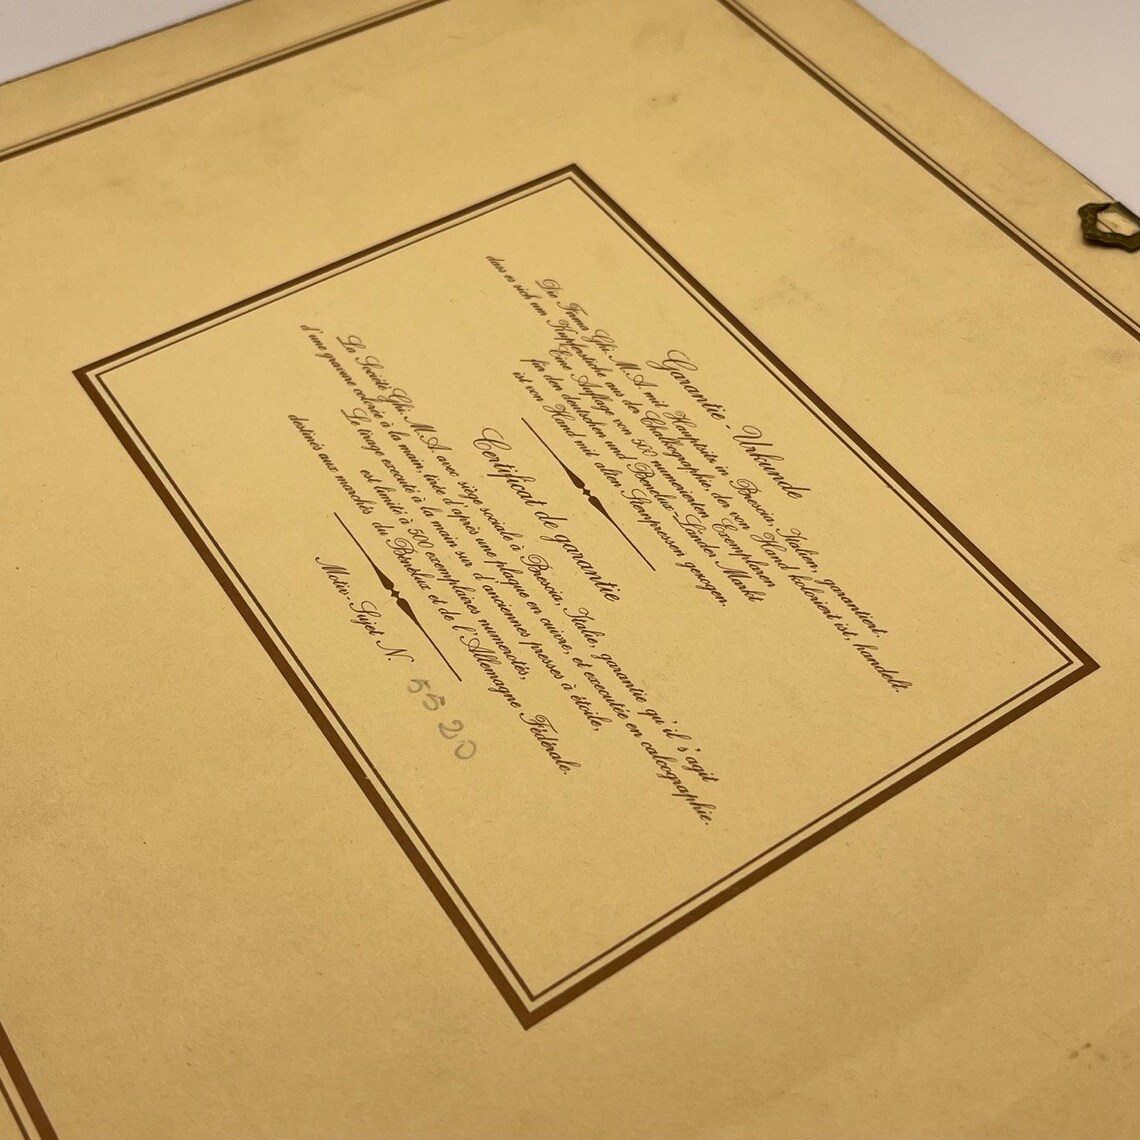 Garantie - Urkunde
Die Firma Ghi. M.A. mit Hauptsitz in Brescia, Italien, garantiert,
dass es sich um Kupferstiche aus der Chalkographie, der von Hand koloriert ist, handelt.
Eine Auflage von 500 numerierten Exemplaren
für den deutschen und Benelux-Länder Markt
ist von Hand mit alten Sternpressen gezogen.
Certificat de garantie
La Société Ghi. M.A. avec siège sociale à Brescia, Italie, garantie qu'il s'agit
d'une gravure colorée à la main, tirée d'après une plaque en cuivre, et executée en calcographie.
Le tirage executé à la main sur d'anciennes presses à étoile,
est limité à 500 exemplaires numerotés,
destinés aux marchés du Bénélux et de l'Allemagne Fédérale.
Motiv - Sujet N. 5520